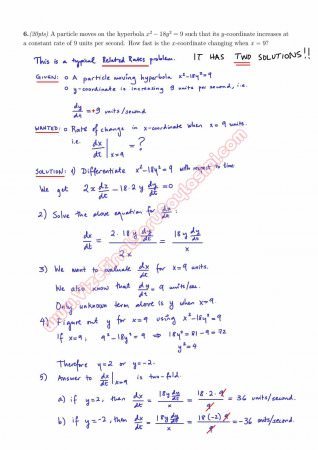 6.(20pts) A particle moves on the hyperbola x² − 18y² = 9 such that its y-coordinate increases at
a constant rate of 9 units per second. How fast is the x-coordinate changing when x = 9?
This is a typical Related Rates problem. IT HAS TWO SOLUTIONS!!
GIVEN: o A particle moving hyperbola x²-18y²=9
o y-coordinate is increasing 9 units per second, i.e.
dy/dt = +9 units/second
WANTED: o Rate of change in x-coordinate when x=9 units.
i.e. dx/dt | x=9 = ?
SOLUTION: 1) Differentiate x²-18y²=9 with respect to time.
We get 2x dx/dt - 18·2y dy/dt = 0
2) Solve the above equation for dx/dt :
dx/dt = 2·18 y dy/dt / 2x = 18y dy/dt / x
3) We want to evaluate dx/dt for x=9 units.
We also know that dy/dt = 9 units/sec.
Only unknown term above is y when x=9.
4) Figure out y for x=9 using x²-18y²=9
If x=9, 9²-18y²=9 ⇒ 18y²=81-9=72
y²=4
Therefore y=2 or y=-2.
5) Answer to dx/dt | x=9 is two-fold.
a) if y=2, then dx/dt = 18y dy/dt / x = 18·2·9 / 9 = 36 units/second.
b) if y=-2, then dx/dt = 18y dy/dt / x = 18(-2)9 / 9 = -36 units/second.